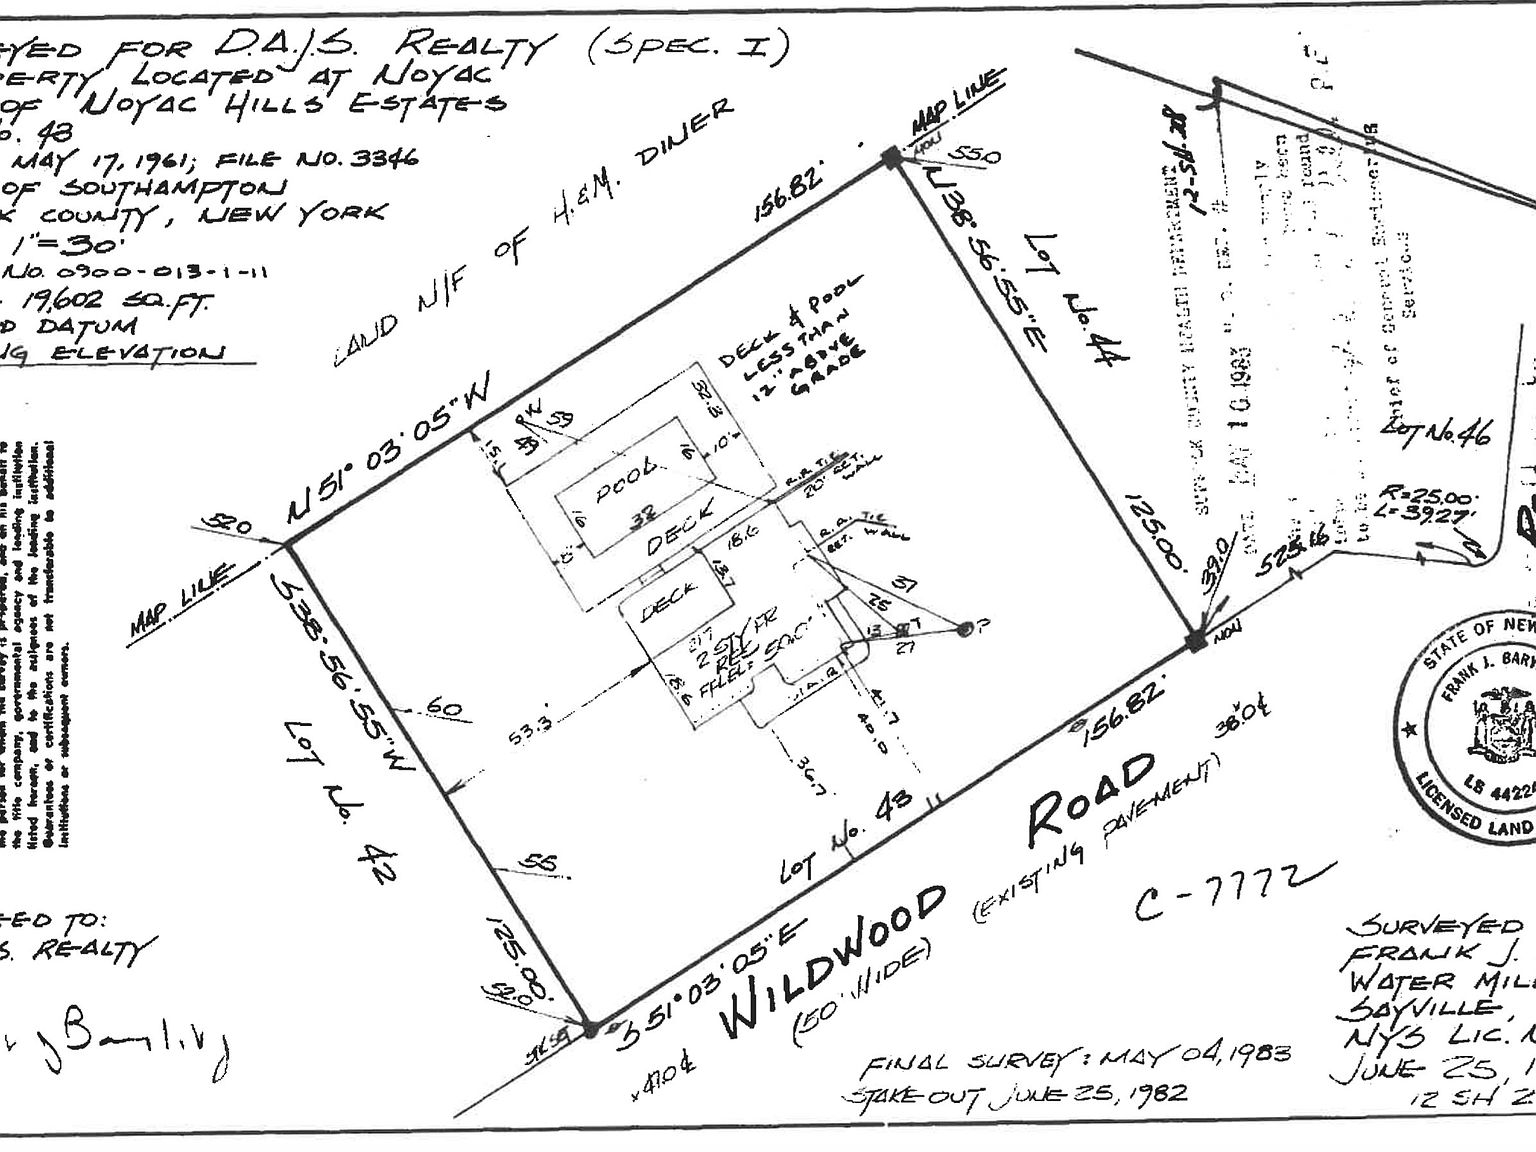 EYED FOR D.A.J.S. REALTY (SPEC. I)
PERTY LOCATED AT NOYAC
OF NOYAC HILLS ESTATES
O. 43
MAY 17, 1961; FILE NO. 3346
OF SOUTHAMPTON
K COUNTY, NEW YORK
1"=30'
NO. 0900-013-1-11
19,602 SQ.FT.
D DATUM
NG ELEVATION
LAND N/F OF H.&M. DINER
MAP LINE
MON
55.0
156.82'
N 51° 03' 05" W
N38° 56' 55" E
LOT No. 44
125.00'
DECK & POOL
LESS THAN
12" ABOVE
GRADE
52.0
MAP LINE
S38° 56' 55" W
LOT No. 42
60
55
125.00'
52.0
53.3'
15.
59
32.8
POOL
16
10'
16
32
8'
DECK
R.R. TIE
20' RET.
WALL
R.R. TIE
RET. WALL
18.6
13.7
DECK
21.7
2 STY FR
RES.
FFLEL= 50.0'
18.6
37
25
13
27
?
41.7
40.0
36.7
LOT No. 43
39.0
MON
525.16
156.82'
38.0 ℄
S 51° 03' 05" E
WILDWOOD ROAD
(50' WIDE)
(EXISTING PAVEMENT)
x 47.0 ℄
C-7772
FINAL SURVEY: MAY 04, 1983
STAKE OUT JUNE 25, 1982
SUFFOLK COUNTY HEALTH DEPARTMENT
12-SH-28
DATE MAY 10 1983
Chief of General Engineering
Services
LOT No. 46
R=25.00'
L=39.27'
STATE OF NEW
FRANK J. BAR
LS 4422
LICENSED LAND
the title company, governmental agency and lending institution
listed hereon, and to the assignees of the lending institution.
Guarantees or certifications are not transferable to additional
institutions or subsequent owners.
EED TO:
S. REALTY
SURVEYED
FRANK J.
WATER MIL
SAYVILLE,
NYS LIC. N
JUNE 25, 1
12 SH 2